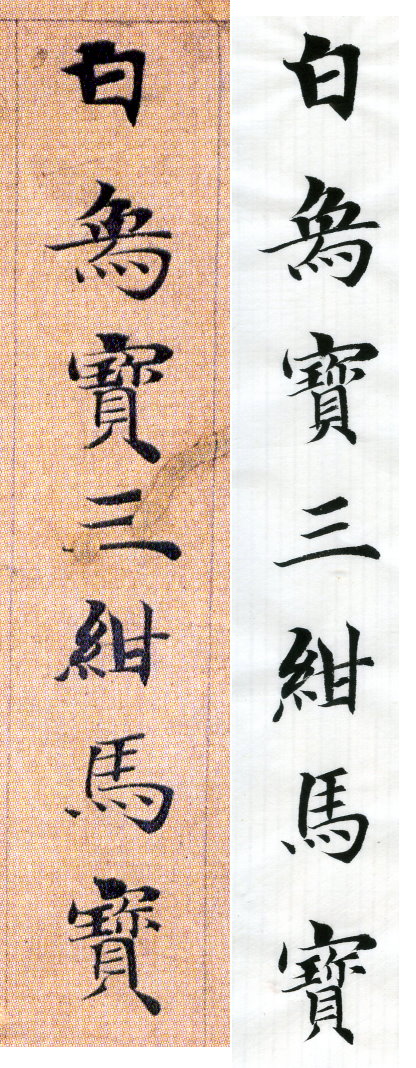 白象寶三紺馬寶
白象寶三紺馬寶